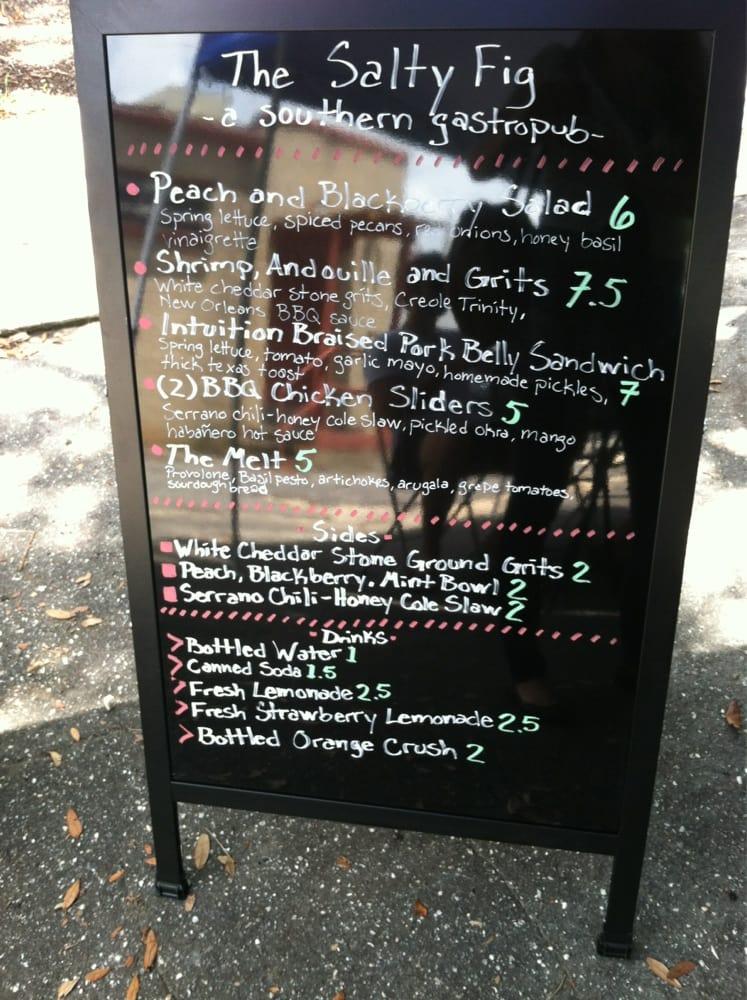 The Salty Fig
-a southern gastropub-
Peach and Blackberry Salad 6
Spring lettuce, spiced pecans, red onions, honey basil
vinaigrette
Shrimp, Andouille and Grits 7.5
White cheddar stone grits, Creole Trinity,
New Orleans BBQ sauce
Intuition Braised Pork Belly Sandwich
Spring lettuce, tomato, garlic mayo, homemade pickles, 7
thick texas toast
(2) BBQ Chicken Sliders 5
Serrano chili-honey cole slaw, pickled okra, mango
habañero hot sauce
The Melt 5
Provolone, Basil pesto, artichokes, arugala, grape tomatoes,
sourdough bread
-Sides-
White Cheddar Stone Ground Grits 2
Peach, Blackberry. Mint Bowl 2
Serrano Chili-Honey Cole Slaw 2
-Drinks-
Bottled Water 1
Canned Soda 1.5
Fresh Lemonade 2.5
Fresh Strawberry Lemonade 2.5
Bottled Orange Crush 2